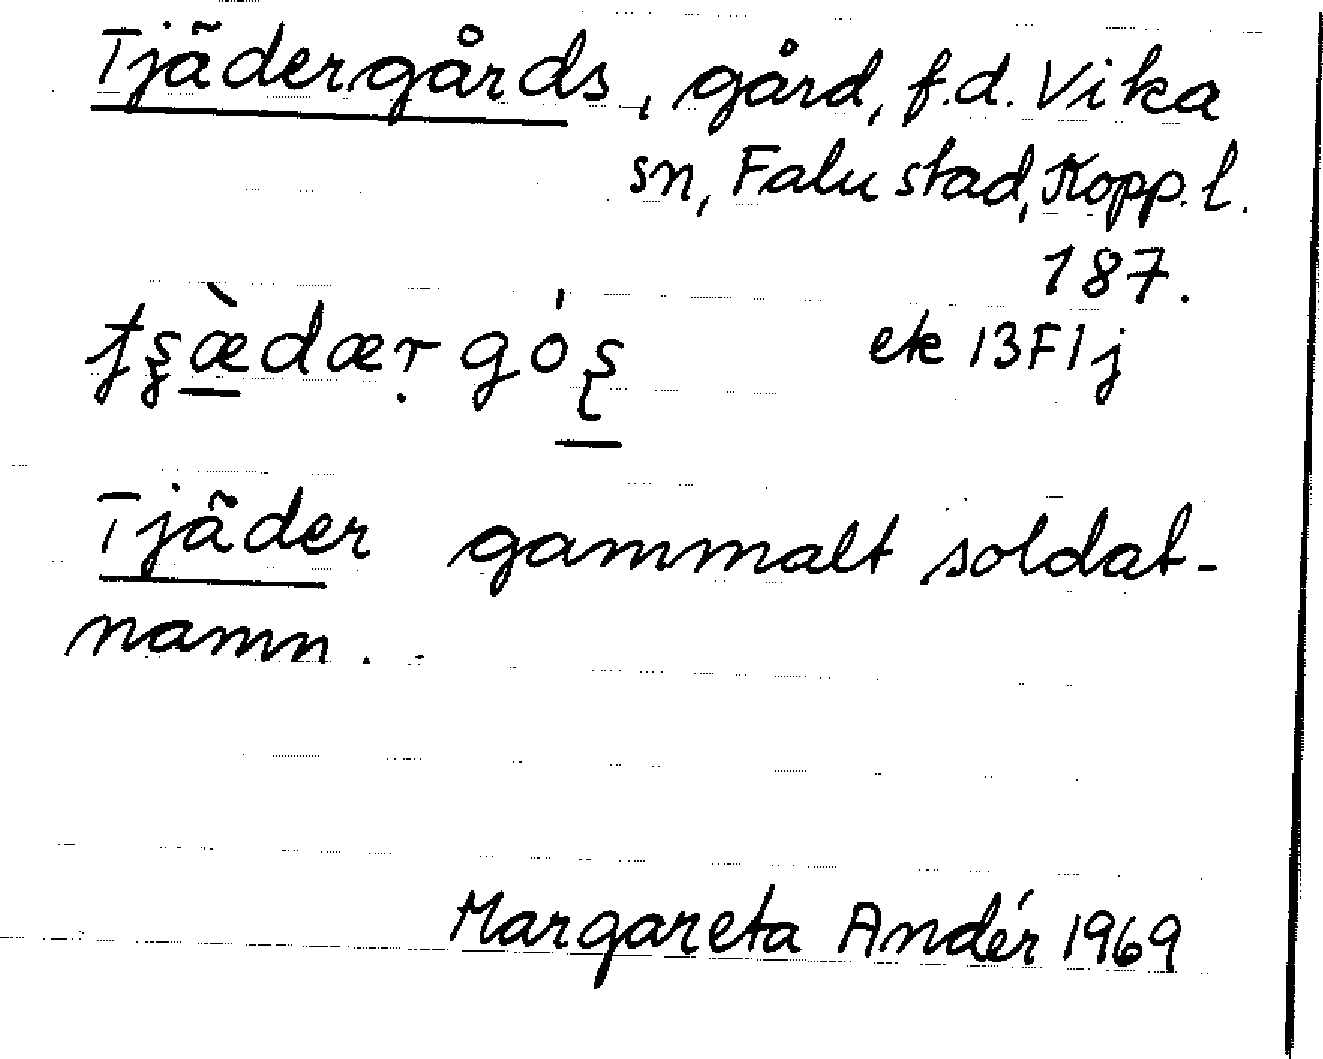 Tjädergårds, gård, f.d. Vika
sn, Falu stad, Kopp. l.
187.
ek 13F1j
Tjäder gammalt soldat-
namn.
Margareta Andér 1969